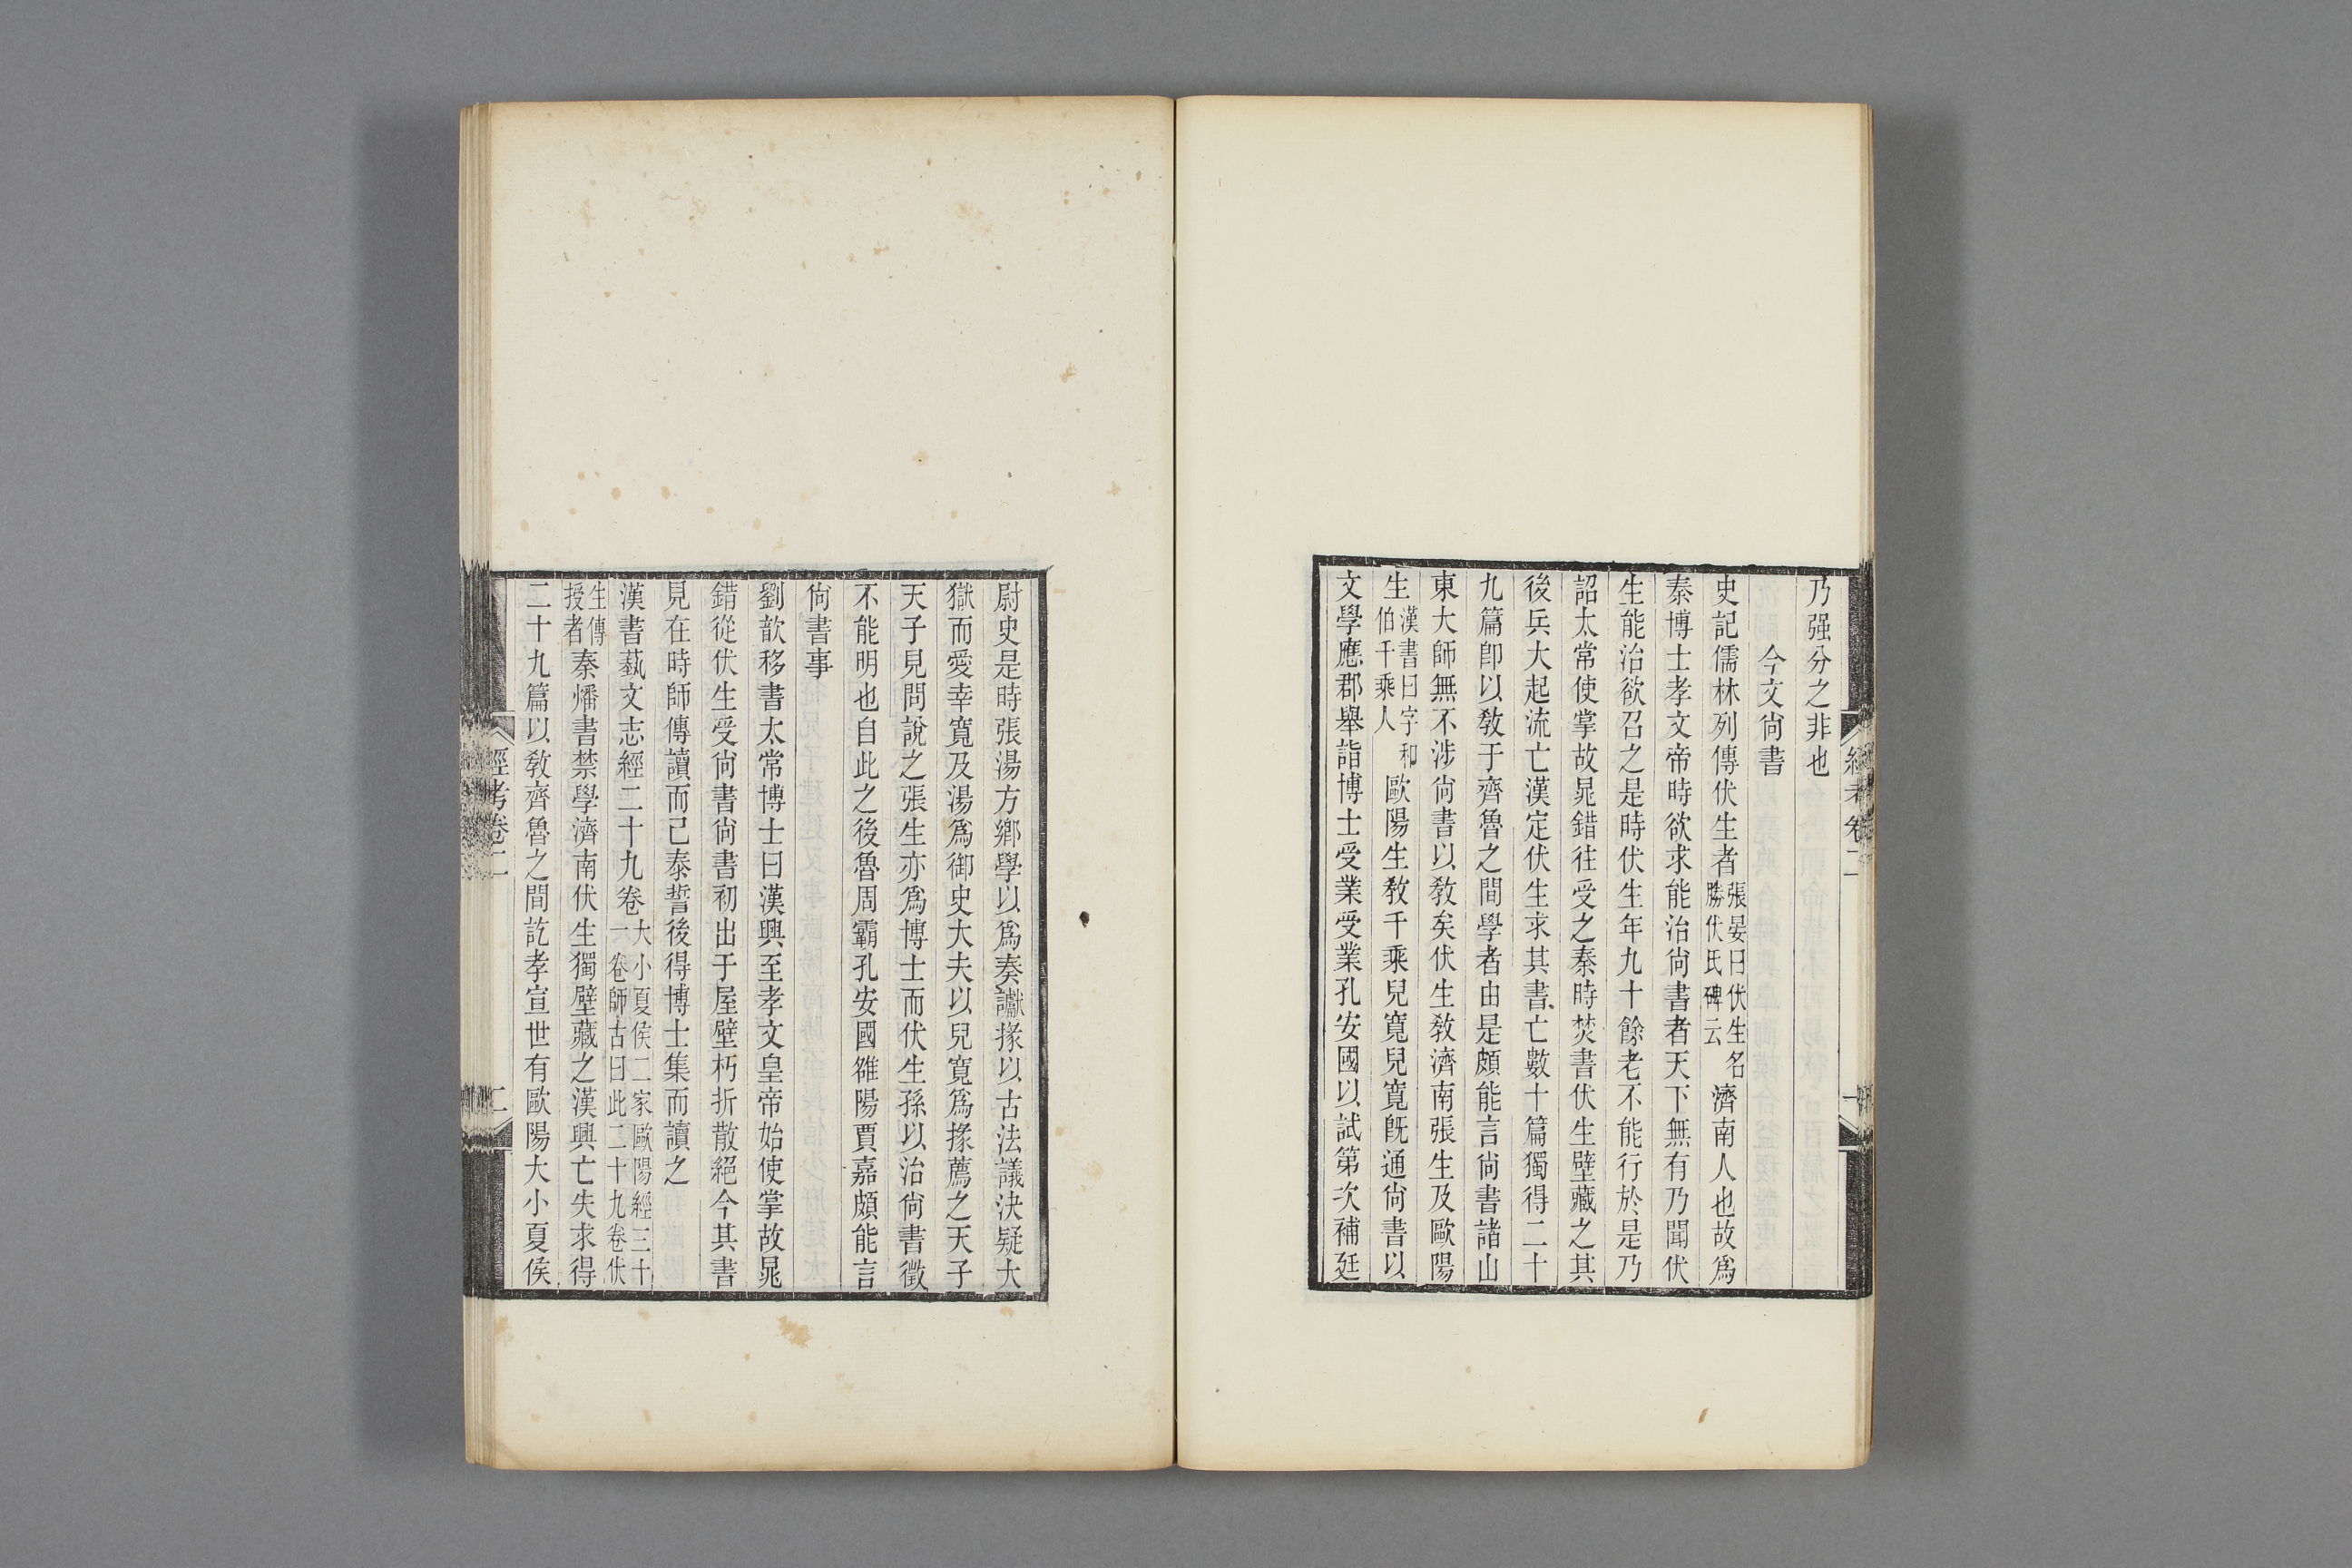 乃强分之非也
今文尙書
史記儒林列傳伏生者張晏曰伏生名勝伏氏碑云濟南人也故爲
秦博士孝文帝時欲求能治尙書者天下無有乃聞伏
生能治欲召之是時伏生年九十餘老不能行於是乃
詔太常使掌故晁錯往受之秦時焚書伏生壁藏之其
後兵大起流亡漢定伏生求其書亡數十篇獨得二十
九篇卽以敎于齊魯之間學者由是頗能言尙書諸山
東大師無不涉尙書以敎矣伏生敎濟南張生及歐陽
生漢書曰字和伯千乘人歐陽生敎千乘兒寬兒寬旣通尙書以
文學應郡舉詣博士受業受業孔安國以試第次補廷
經考卷二
一
尉史是時張湯方鄕學以爲奏讞掾以古法議決疑大
獄而愛幸寬及湯爲御史大夫以兒寬爲掾薦之天子
天子見問說之張生亦爲博士而伏生孫以治尙書徵
不能明也自此之後魯周霸孔安國雒陽賈嘉頗能言
尙書事
劉歆移書太常博士曰漢興至孝文皇帝始使掌故晁
錯從伏生受尙書尙書初出于屋壁朽折散絕今其書
見在時師傳讀而已泰誓後得博士集而讀之
漢書蓺文志經二十九卷大小夏侯二家歐陽經三十一卷師古曰此二十九卷伏
生傳授者秦燔書禁學濟南伏生獨壁藏之漢興亡失求得
二十九篇以敎齊魯之間訖孝宣世有歐陽大小夏侯
經考卷二
二